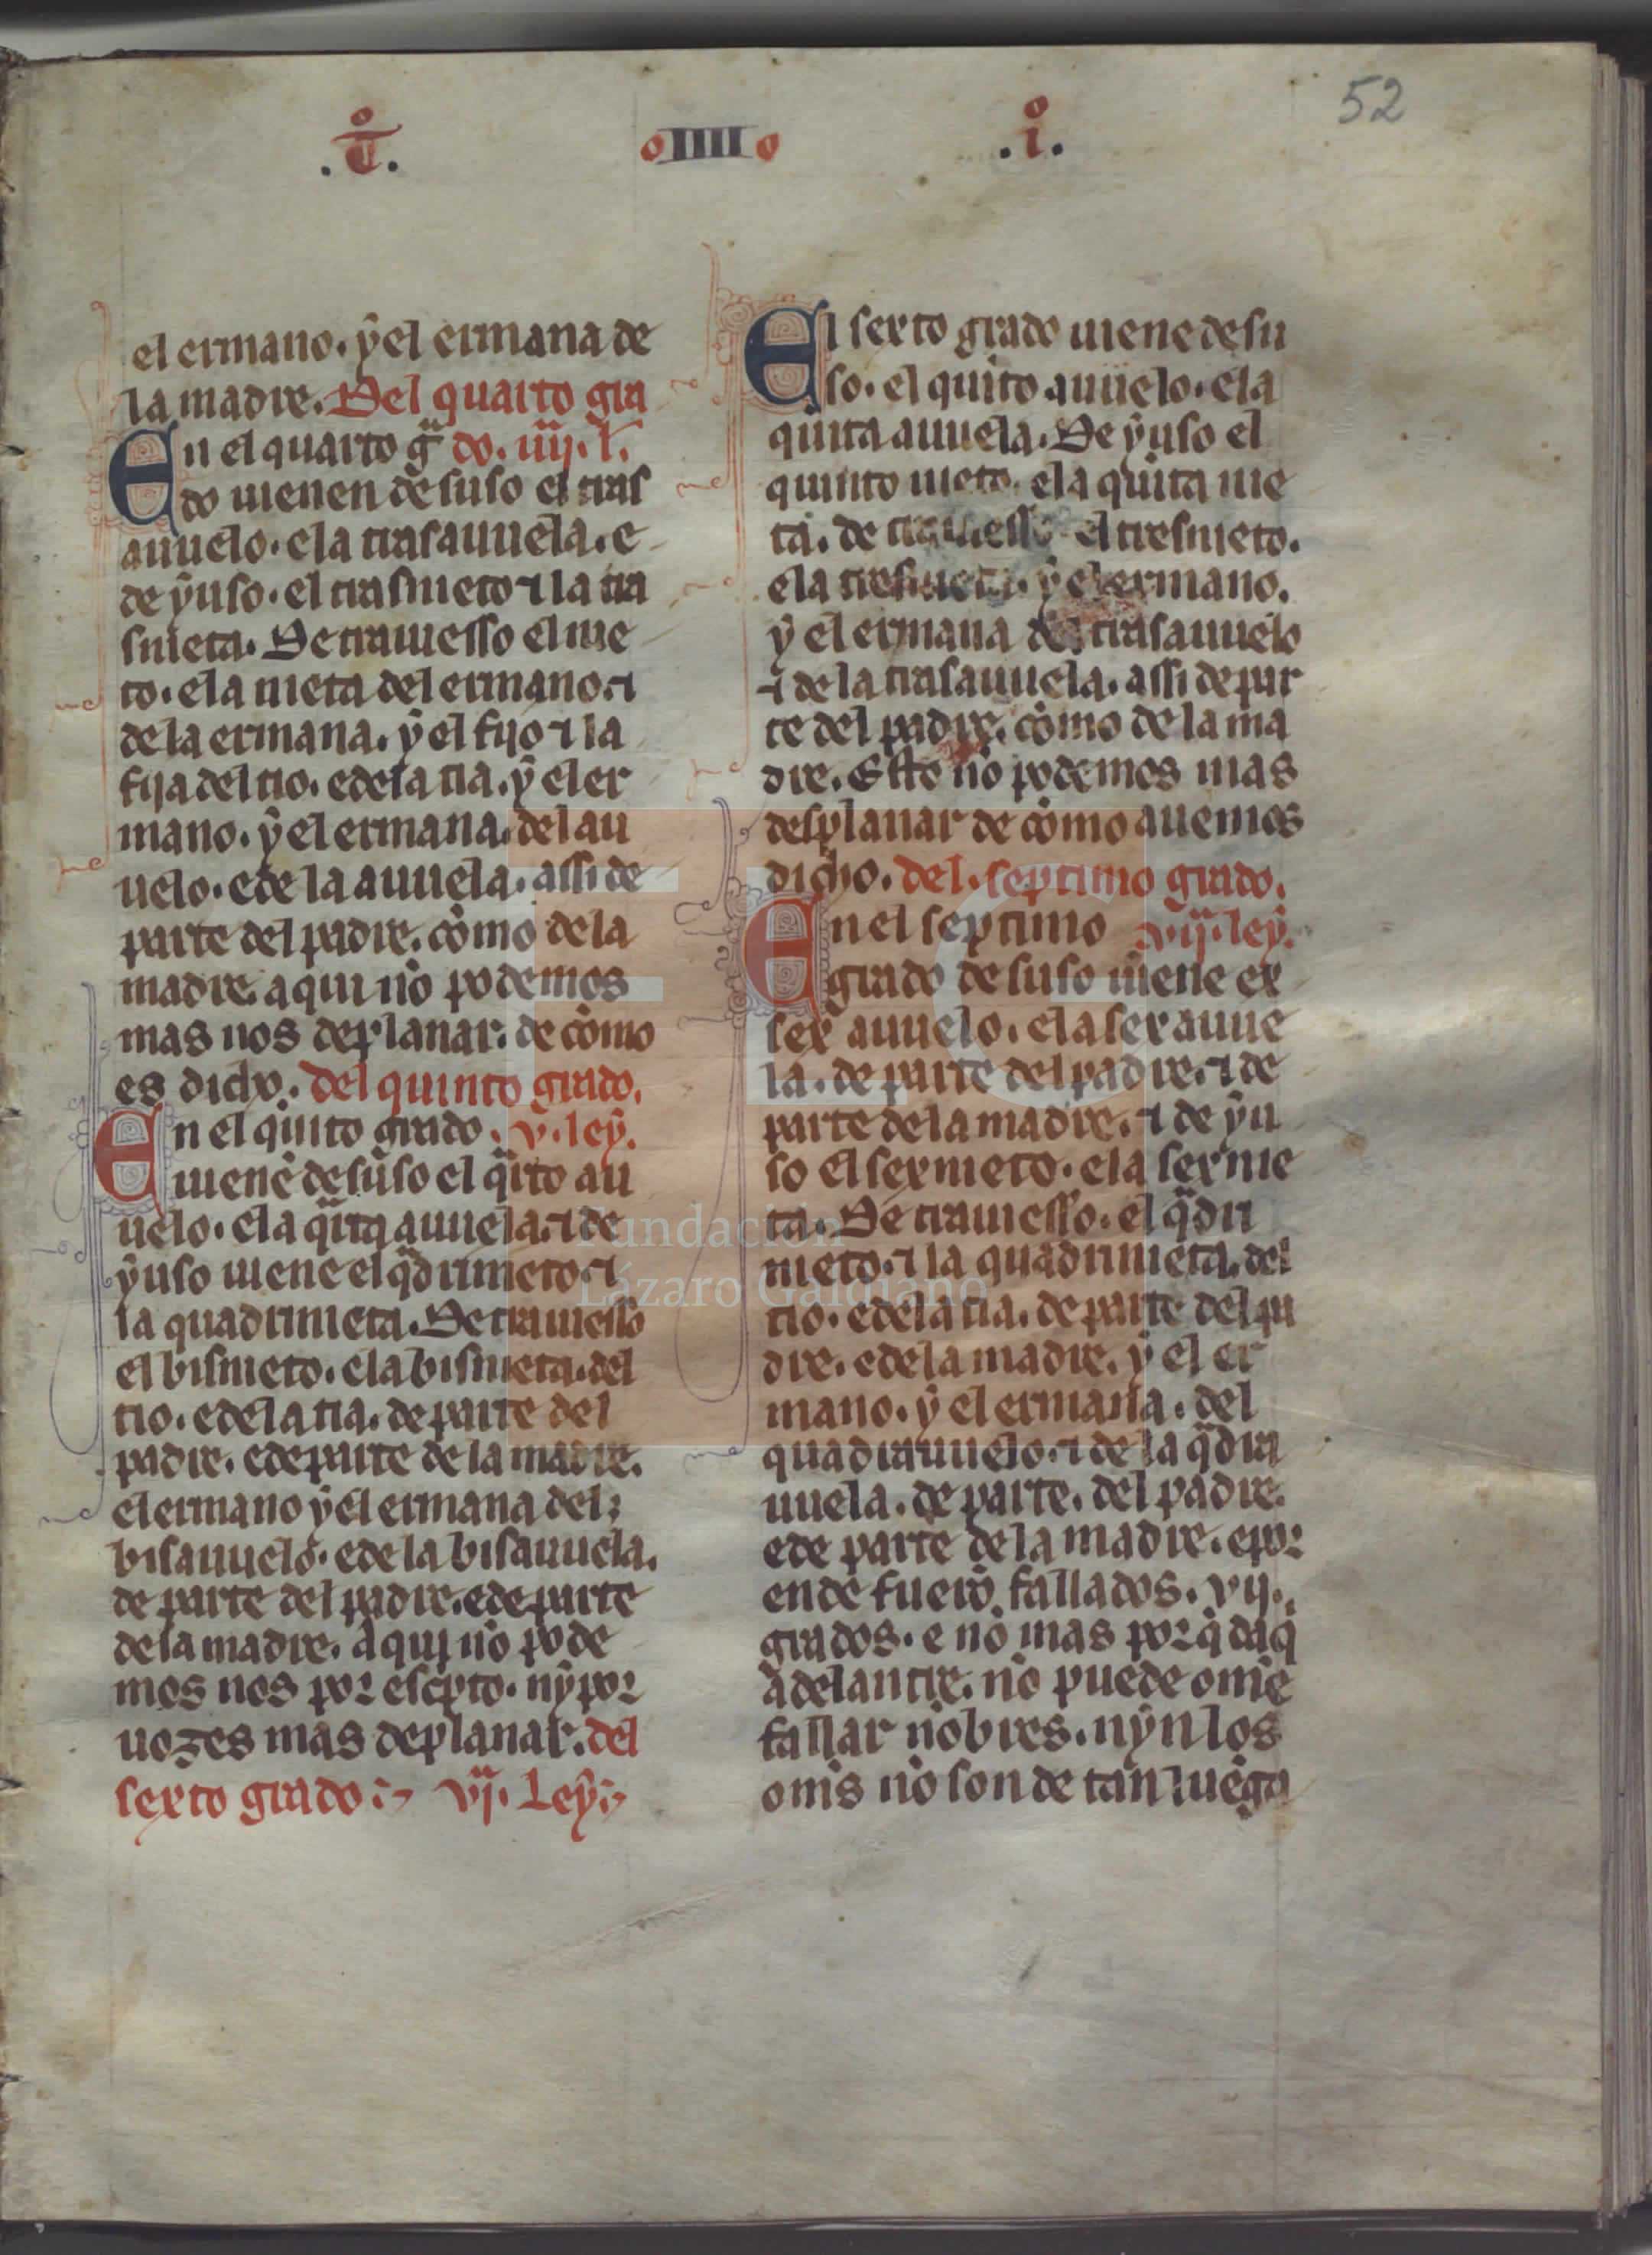 52
.t̊. IIII .i̊.
el ermano. ẏ el ermana de
la madre. Del quarto gra
En el quarto gͣ do. iiij. l.
do uienen de suso el tras
auuelo. e la trasauuela. e
de ẏuso. el trasnieto ⁊ la tra
snieta. De trauiesso el nie
to. e la nieta del ermano. ⁊
de la ermana. ẏ el fijo ⁊ la
fija del tio. e de la tia. ẏ el er
mano. ẏ el ermana. del au
uelo. e de la auuela. assi de
parte del padre. cómo de la
madre. aqui nō podemos
mas nos deplanar. de cómo
es dicho. del quinto grado.
En el qͥnto grado. v. leẏ.
uiene de suso el qͥnto au
uelo. e la qͥnta auuela. ⁊ de
ẏuso uiene el qͣdrinieto. ⁊
la quadrinieta. De trauiesso
el bisnieto. e la bisnieta. del
tio. e de la tia. de parte del
padre. e de parte de la madre.
el ermano ẏ el ermana del
bisauuelo. e de la bisauuela.
de parte del padre. e de parte
de la madre. aqui nō pode
mos nos por escͥpto. nẏ por
uozes mas deplanar. del
sexto grado vj. Leẏ
El sexto grado uiene de su
so. el quīto auuelo. e la
quīta auuela. De ẏuso el
quinto nieto. e la quīta nie
ta. de trauiesso el tresnieto.
e la tresnieta. ẏ el ermano.
ẏ el ermana del trasauuelo
⁊ de la trasauuela. assi de par
te del padre. cómo de la ma
dre. Esto nō podemos mas
desplanar de cómo auemos
dicho. del septimo grado.
En el septimo vij. leẏ.
grado de suso uiene ex
sex auuelo. e la sexauue
la. de parte del padre. ⁊ de
parte de la madre. ⁊ de ẏu
so el sexnieto. e la sexnie
ta. De trauiesso. el qͣdri
nieto. ⁊ la quadrinieta. del
tio. e de la tia. de parte del pa
dre. e de la madre. ẏ el er
mano. ẏ el ermana. del
quadrauuelo. ⁊ de la qͣdra
uuela. de parte. del padre.
e de parte de la madre. e por
ende fuerō fallados. vij.
grados. e nō mas por q̄ daq̄
adelantre. nō puede ome
fallar nōbres. nẏn los
omīs nō son de tan luega
Fundación
Lázaro Galdiano